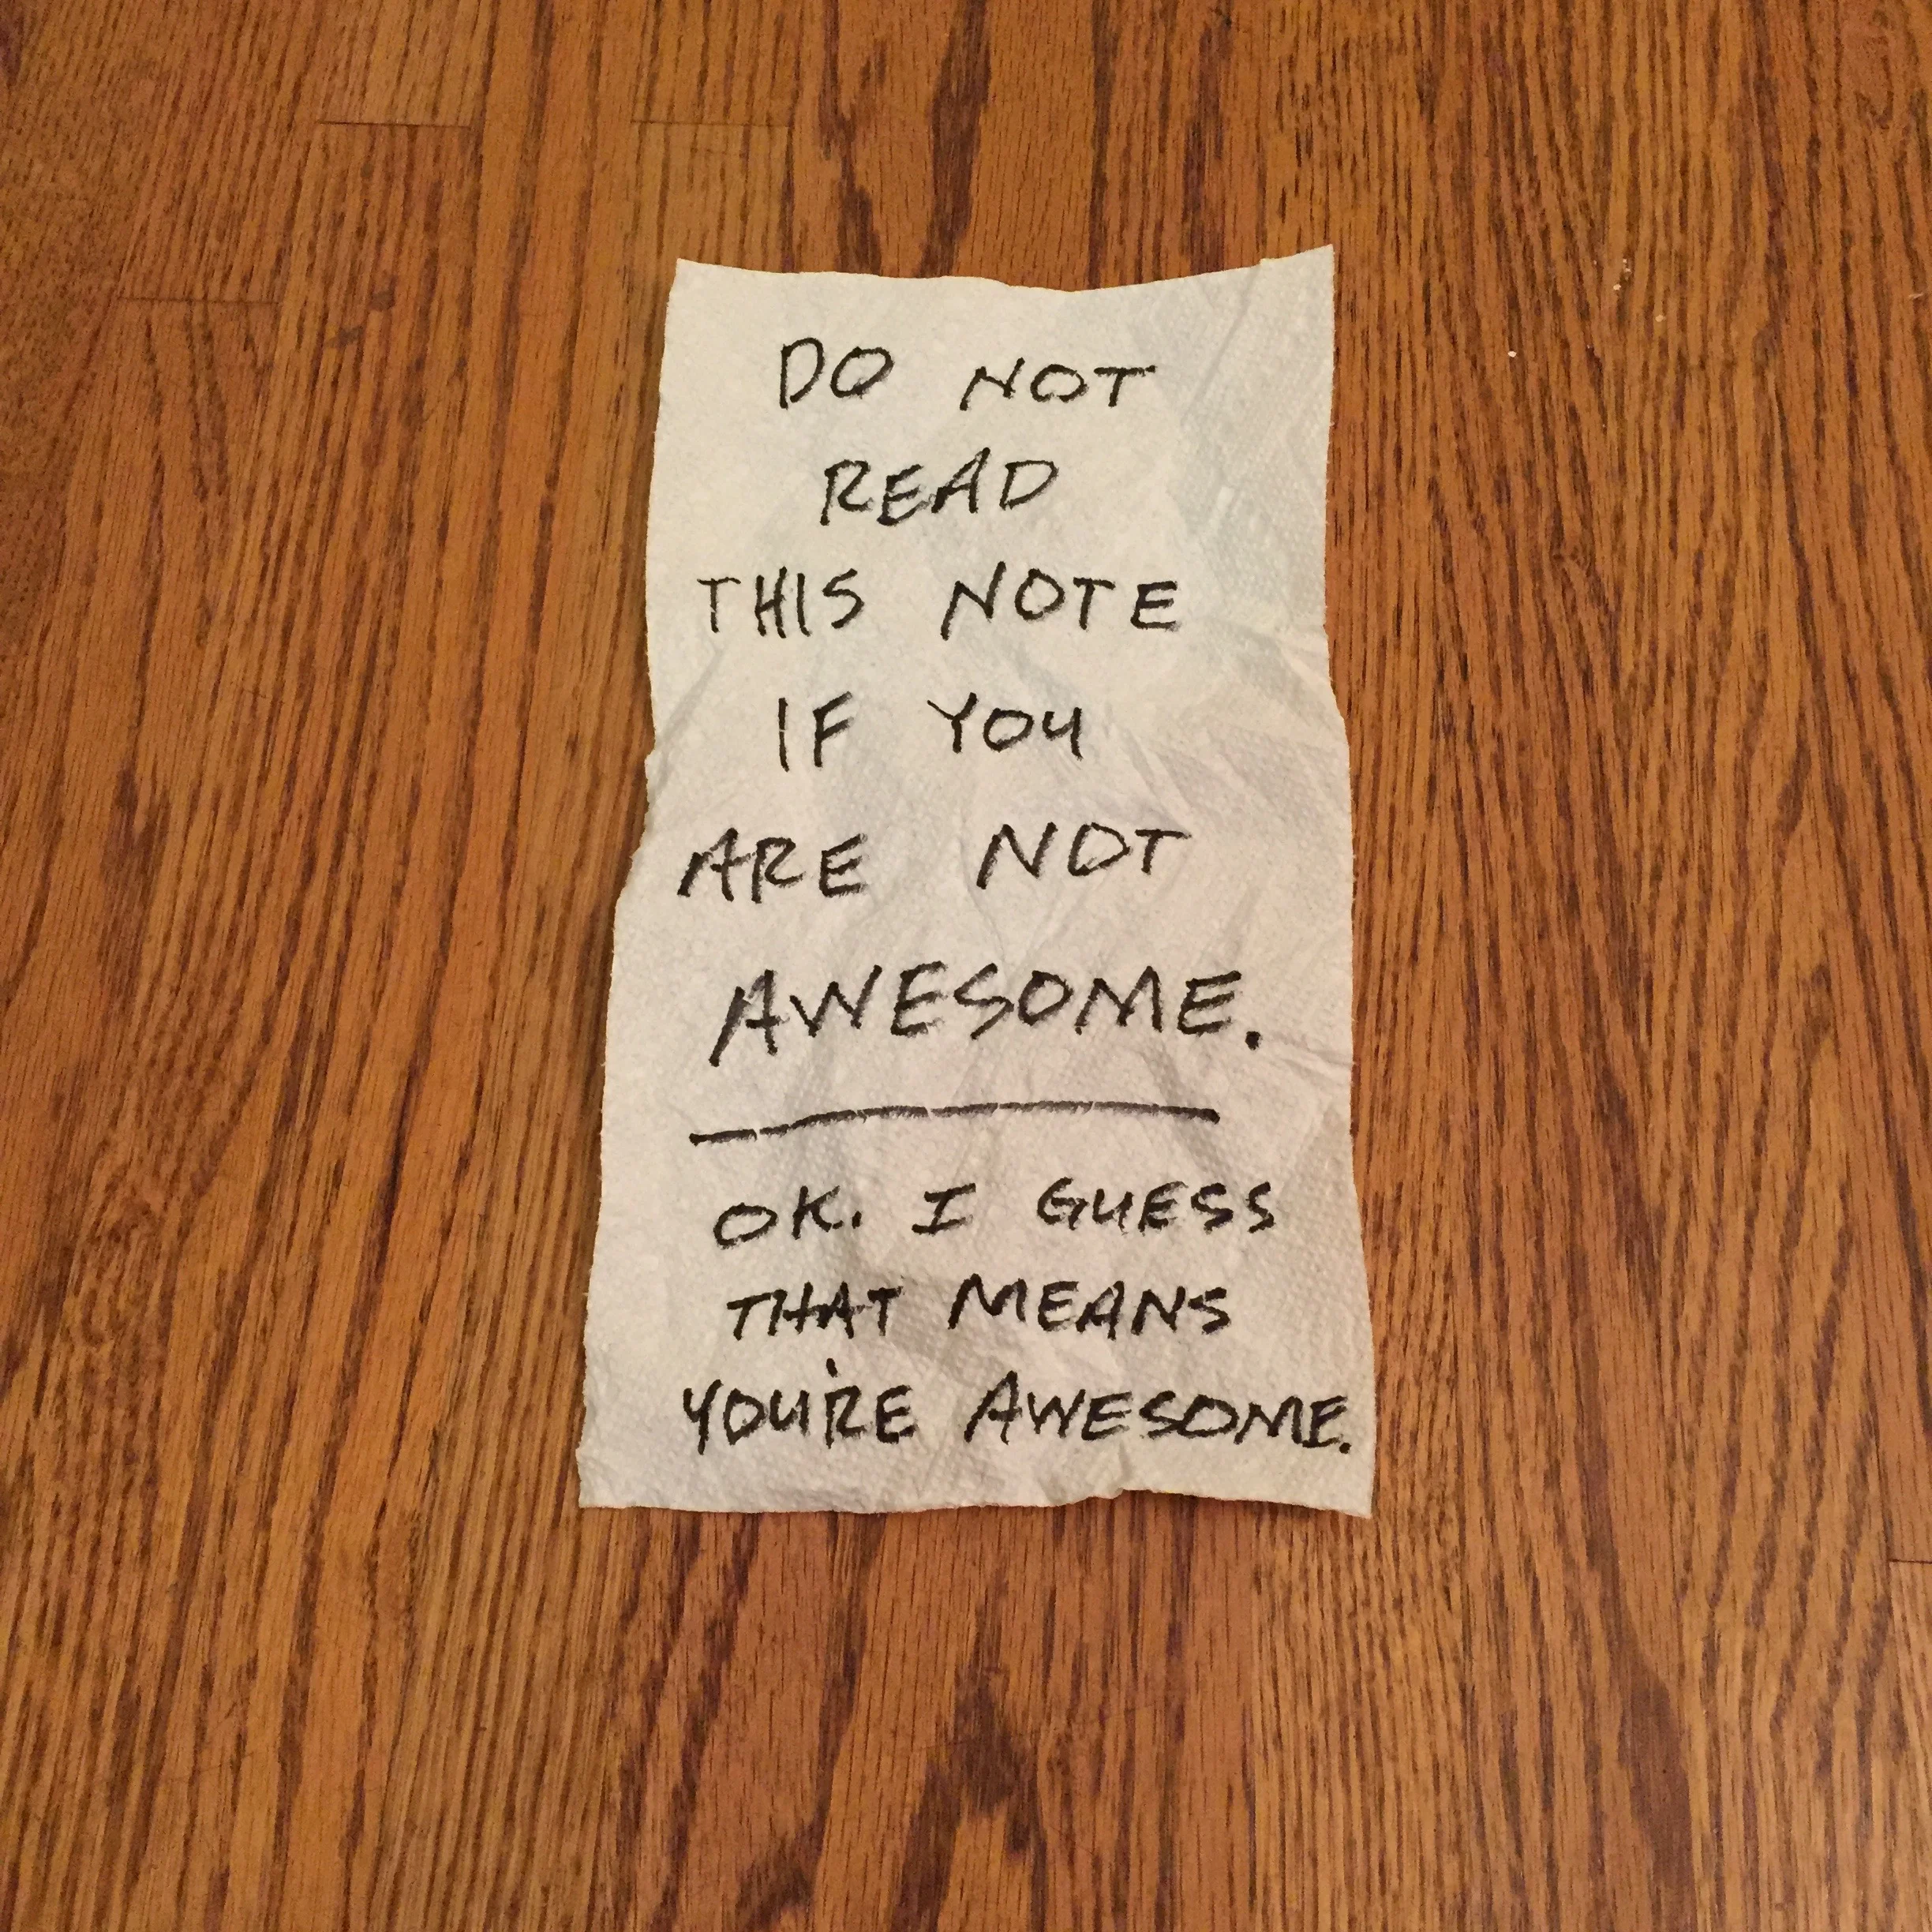 DO NOT
READ
THIS NOTE
IF YOU
ARE NOT
AWESOME.
OK. I GUESS
THAT MEANS
YOU'RE AWESOME.